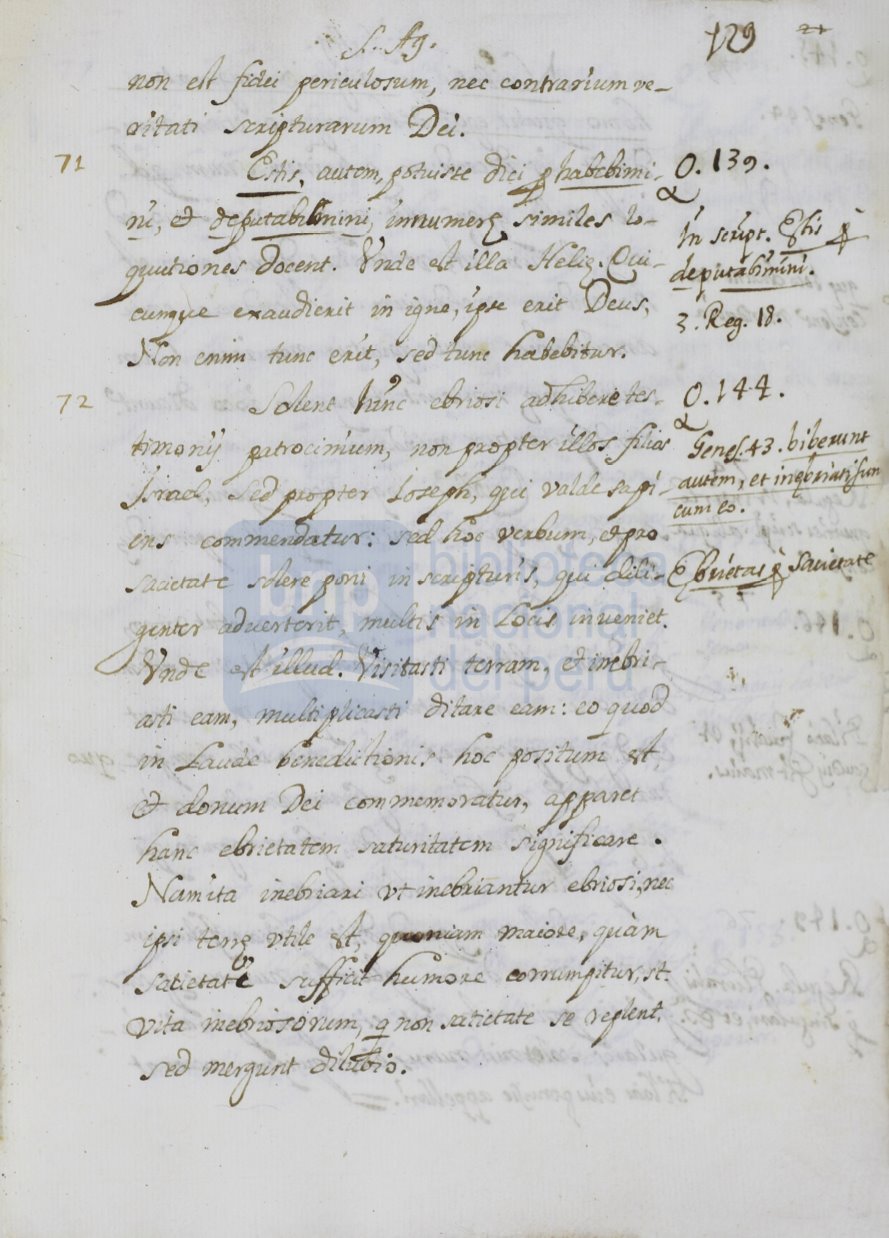 S. Ag.
129
21
non est fidei periculosum, nec contrarium ve-
ritati scripturarum Dei.
71
Estis, autem, potuisse dici ꝓ habebimi-
ni, et deputabimini, innumerę similes lo-
quutiones docent. Unde est illa Helię. Qui-
cunque exaudierit in igne, ipse erit Deus,
Non enim tunc erit, sed tunc habebitur.
Q. 139.
In script. Estis ꝓ
deputabimini.
3. Reg. 18.
72
Solent hinc ebriosi adhibere tes-
timonij patrocinium, non propter illos filios
Israel, sed propter Ioseph, qui valde sapi-
ens commendatur: sed hoc verbum, et pro
sacietate solere poni in scripturis, qui dili-
genter adverterit, multis in Locis inveniet.
Unde est illud. Visitasti terram, et inebri-
asti eam, multiplicasti ditare eam: eo quod
in Laude benedictionis hoc positum est,
et donum Dei commemoratur, apparet
hanc ebrietatem saturitatem significare.
Nam ita inebriari vt inebriantur ebriosi, nec
ipsi terrę vtile est, quoniam maiore, quàm
satietatē sufficit humore corrumpitur, st.
vita inebriosorum, q̃ non satietate se replent,
sed mergunt dilubio.
Q. 144.
Genes. 43. biberunt
autem, et inębriati sun
cum eo.
Ebrietas ꝓ sacietate
biblioteca
nacional
del perú
bnp